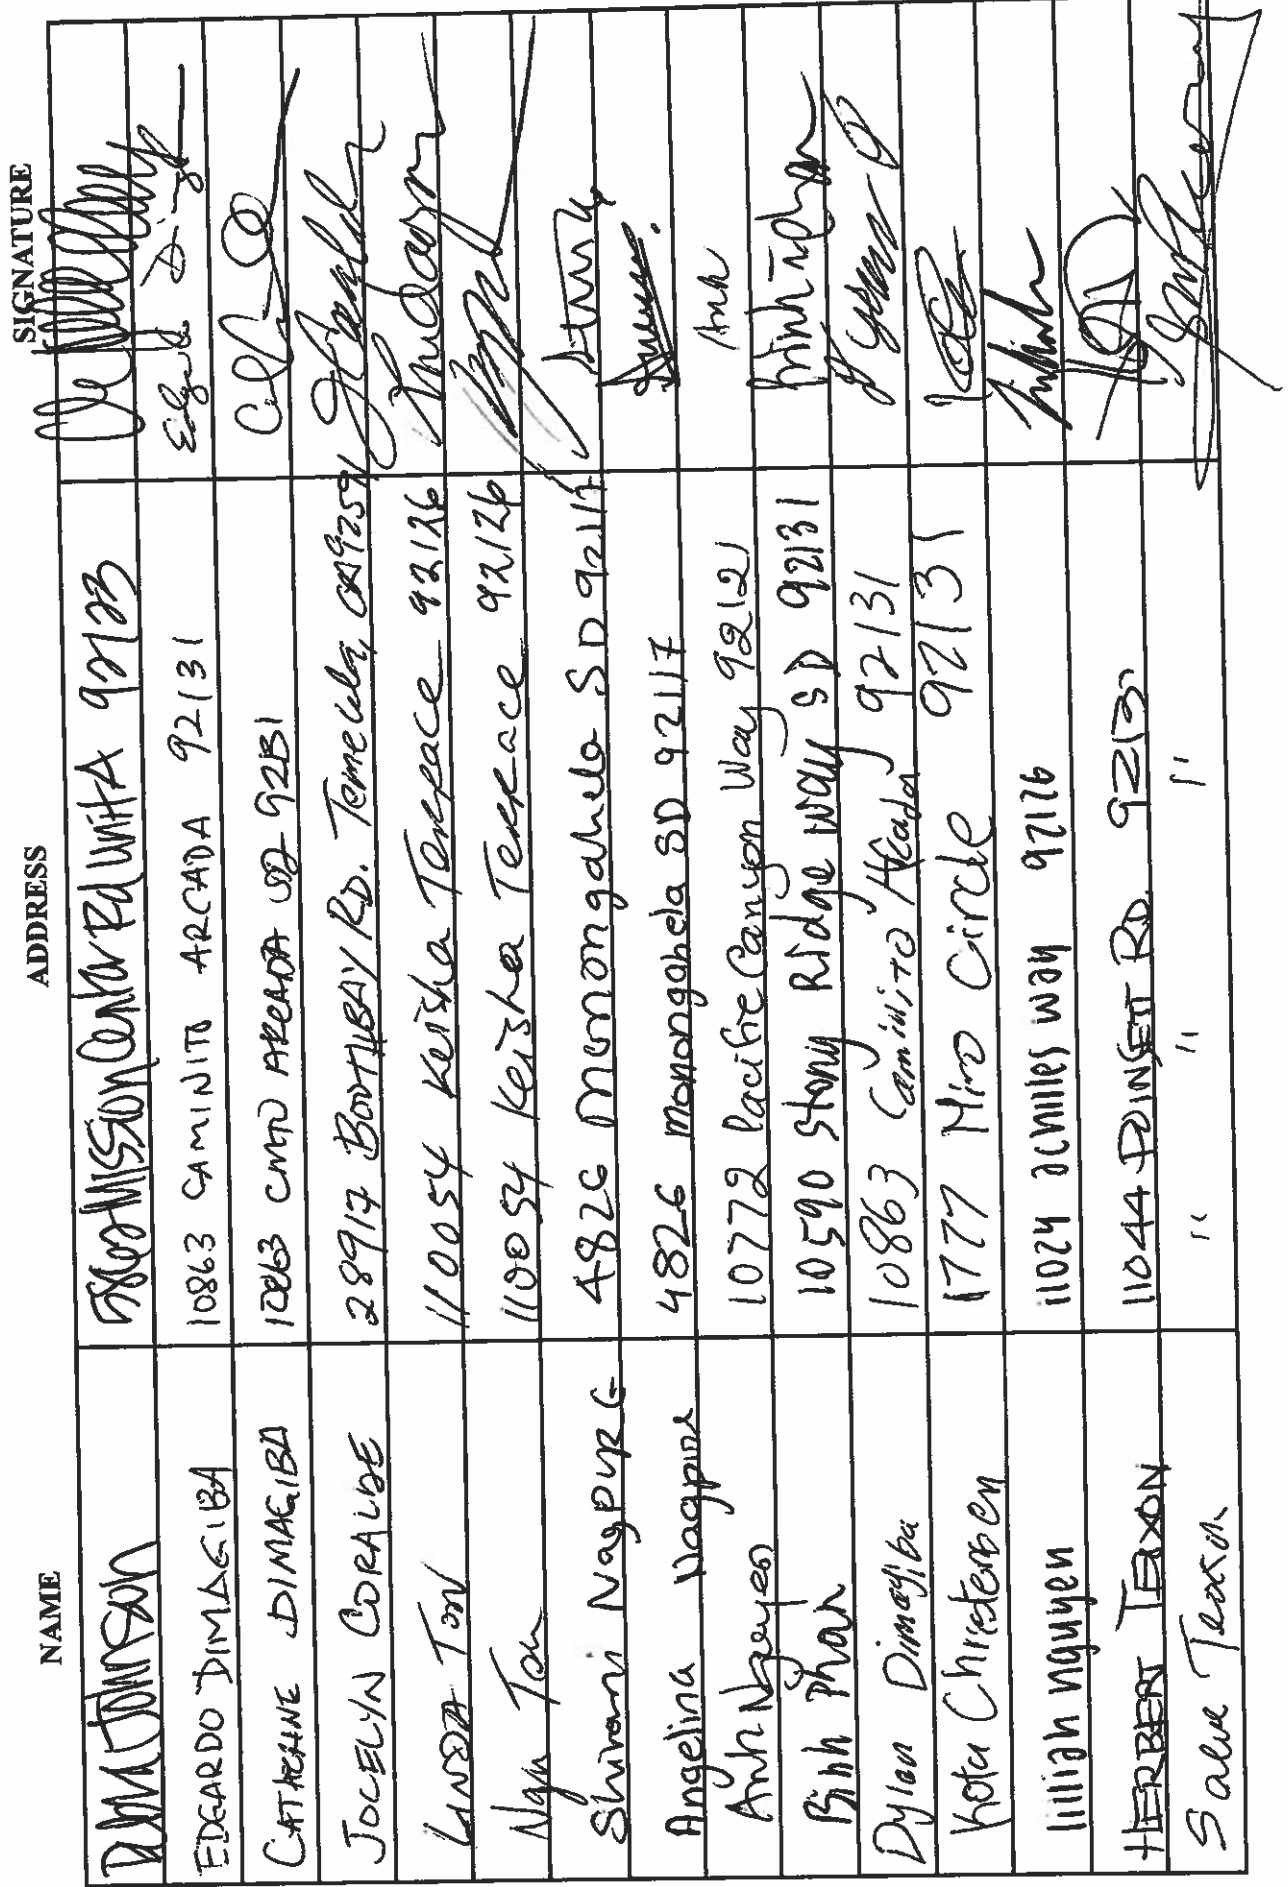 NAME ADDRESS SIGNATURE
Johnson Mission Center Rd Unit A 92123
EDGARDO DIMAGIBA 10863 CAMINITO ARCADA 92131 Edgardo Dimagiba
CATHERINE DIMAGIBA 10863 CMTO ARCADA SD 92131
JOCELYN CORALDE 28917 BOOTHBAY RD. Temecula, CA 92591
LINDA TON 11054 Keisha Terrace 92126
Ngu Ton 11054 Keisha Terrace 92126
Shivani Nagpure 4826 Monongahela SD 92117
Angelina Nagpure 4826 Monongahela SD 92117
Anh Nguyen 10772 Pacific Canyon Way 92121 Anh
Binh Phan 10590 Stony Ridge Way SD 92131
Dylan Dimagiba 10863 Caminito Arcada 92131
Kota Christensen 1777 Miro Circle 92131
lillian nguyen 11024 achilles way 92126
HERBERT TEXON 11044 POINSETT RD. 92131
Salve Texon " " "